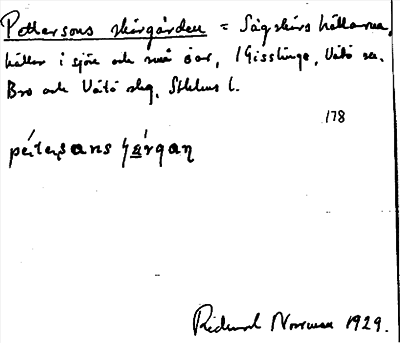 Pettersons skärgården = Sågskärs hällarna,
hällar i sjön och små öar, i Gisslinge, Vätö sn.
Bro och Vätö skg, Sthlms l.
178
péitersans ʃǽrgan
Richard Norrman 1929.